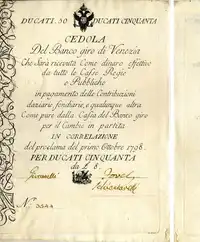 DUCATI. 50. DUCATI CINQUANTA
CEDOLA
Del Banco giro di Venezia
Che Sarà ricevuta Come dinaro effettivo
da tutte le Casse Regie
e Pubbliche
in pagamento delle Contribuzioni
daziarie, fondiarie, e qualunque altra
Come pure dalla Cassa del Banco giro
per il Cambio in partita
IN CORRELAZIONE
del proclama del primo Ottobre 1798.
PER DUCATI CINQUANTA
da L 8
N.º 3544